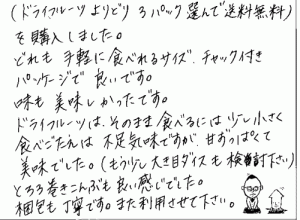 (ドライフルーツ よりどり 3パック 選んで送料無料)
を購入しました。
どれも 手軽に食べれるサイズ、チャック付き
パッケージで 良いです。
味も 美味しかったです。
ドライフルーツは、そのまま食べるには 少し小さく
食べごたえは 不足気味ですが、甘ずっぱくて
美味でした。(もう少し大き目ダイスも 検討下さい)
とろろ巻きこんぶも良い感じでした。
梱包も 丁寧です。また利用させて下さい。